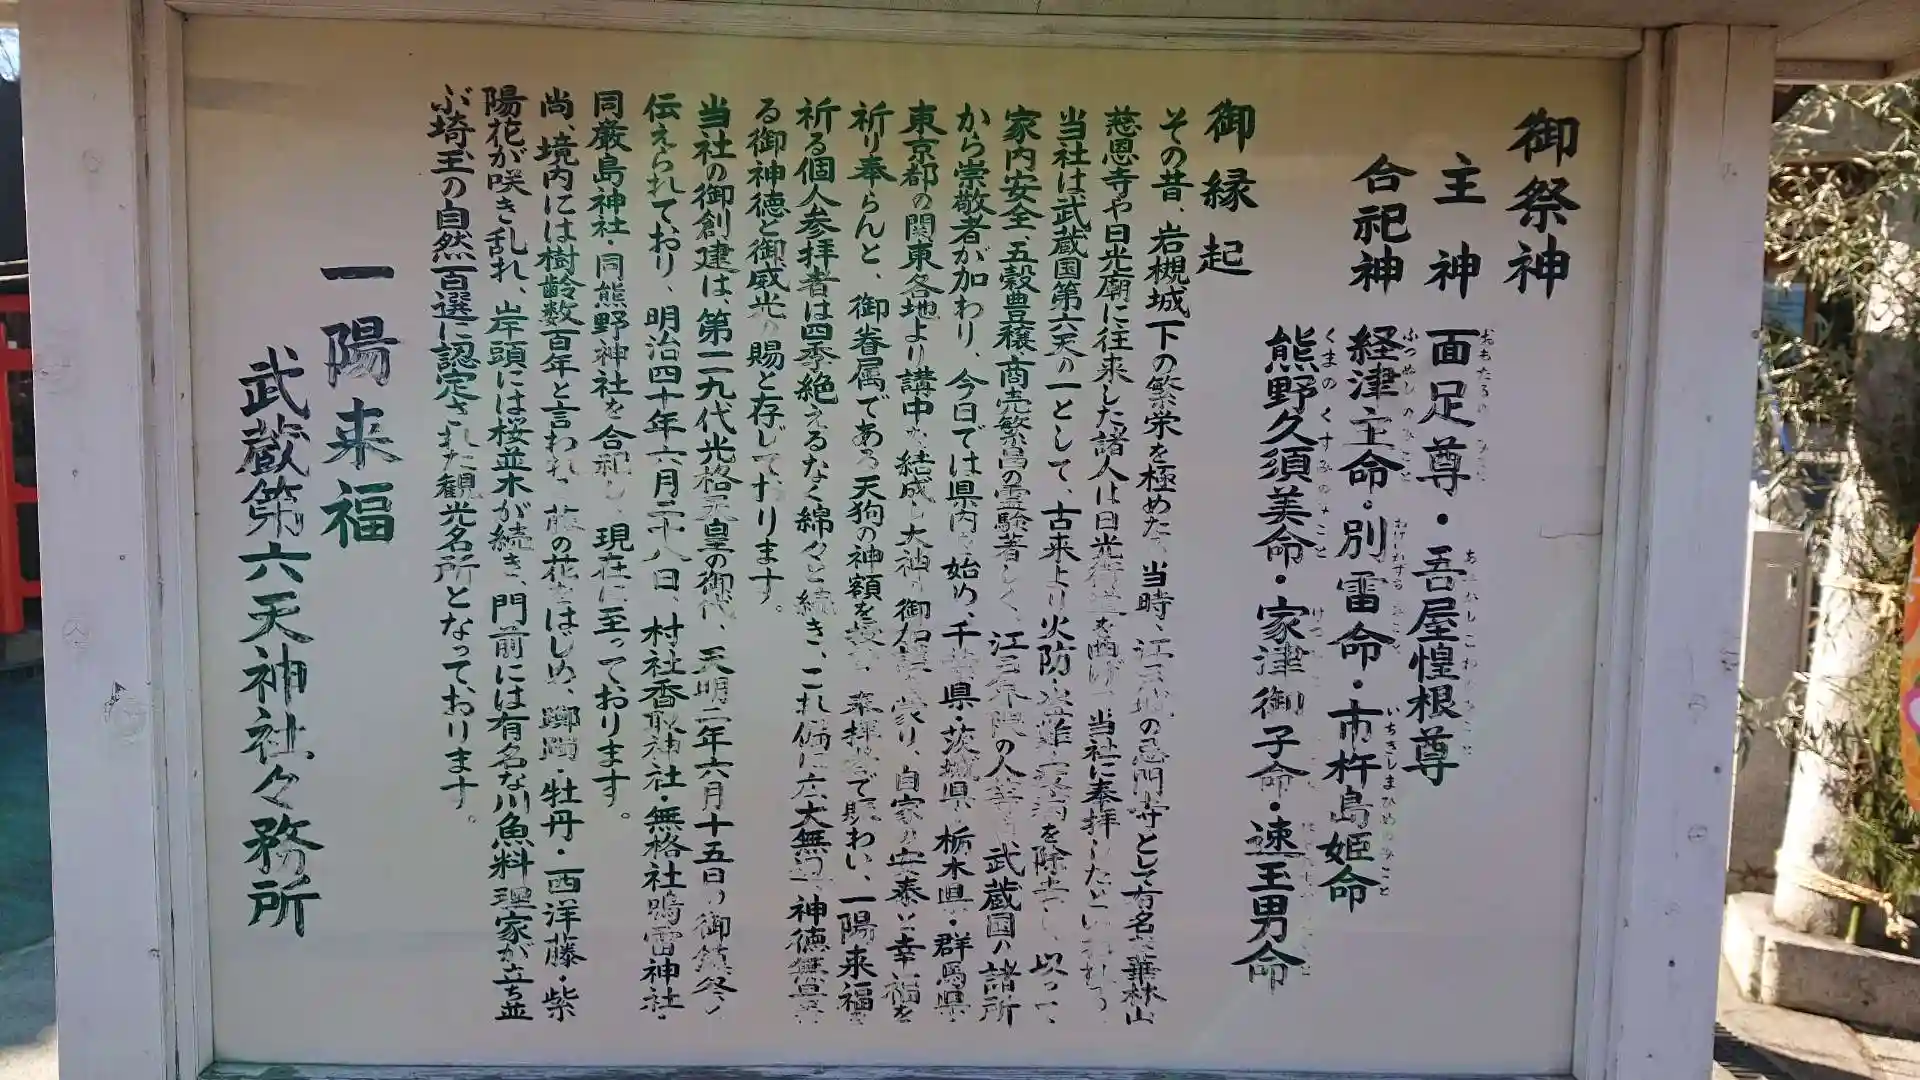 御祭神
主神 面足尊・吾屋惶根尊
合祀神 経津主命・別雷命・市杵島姫命
熊野久須美命・家津御子命・速玉男命
御縁起
その昔、岩槻城下の繁栄を極めた 当時、江戸城の 門寺として有名な華林山
慈恩寺や日光廟に往来した諸人は日光街道を 当社に奉拝したといわれる
当社は武蔵国第六天の一として、古来より火防・盗難 を除去し、以って
家内安全 五穀豊穣 商売繁昌の霊験著しく、江戸 の人 武蔵国八諸所
から崇敬者が加わり、今日では県内を始め、千葉県・茨城県・栃木県・群馬県・
東京都の関東各地より講中を結成し大神の御 蒙り、自家の安泰と幸福を
祈り奉らんと、御眷属である天狗の神額を 奉拝 で賑わい、一陽来福を
祈る個人参拝者は四季絶えるなく綿々と続き、これ偏に広大無辺 神徳無量
る御神徳と御威光の賜と存じております。
当社の御創建は、第一一九代光格天皇の御代、天明二年六月十五日の御鎮祭と
伝えられており、明治四十年六月二十八日、村社香取神社・無格社鳴雷神社・
同厳島神社・同熊野神社を合祀し、現在に至っております。
尚、境内には樹齢数百年と言われ 藤の花をはじめ、躑躅・牡丹・西洋藤・紫
陽花が咲き乱れ、岸頭には桜並木が続き、門前には有名な川魚料理家が立ち並
ぶ埼玉の自然百選に認定された観光名所となっております。
一陽来福
武蔵第六天神社々務所